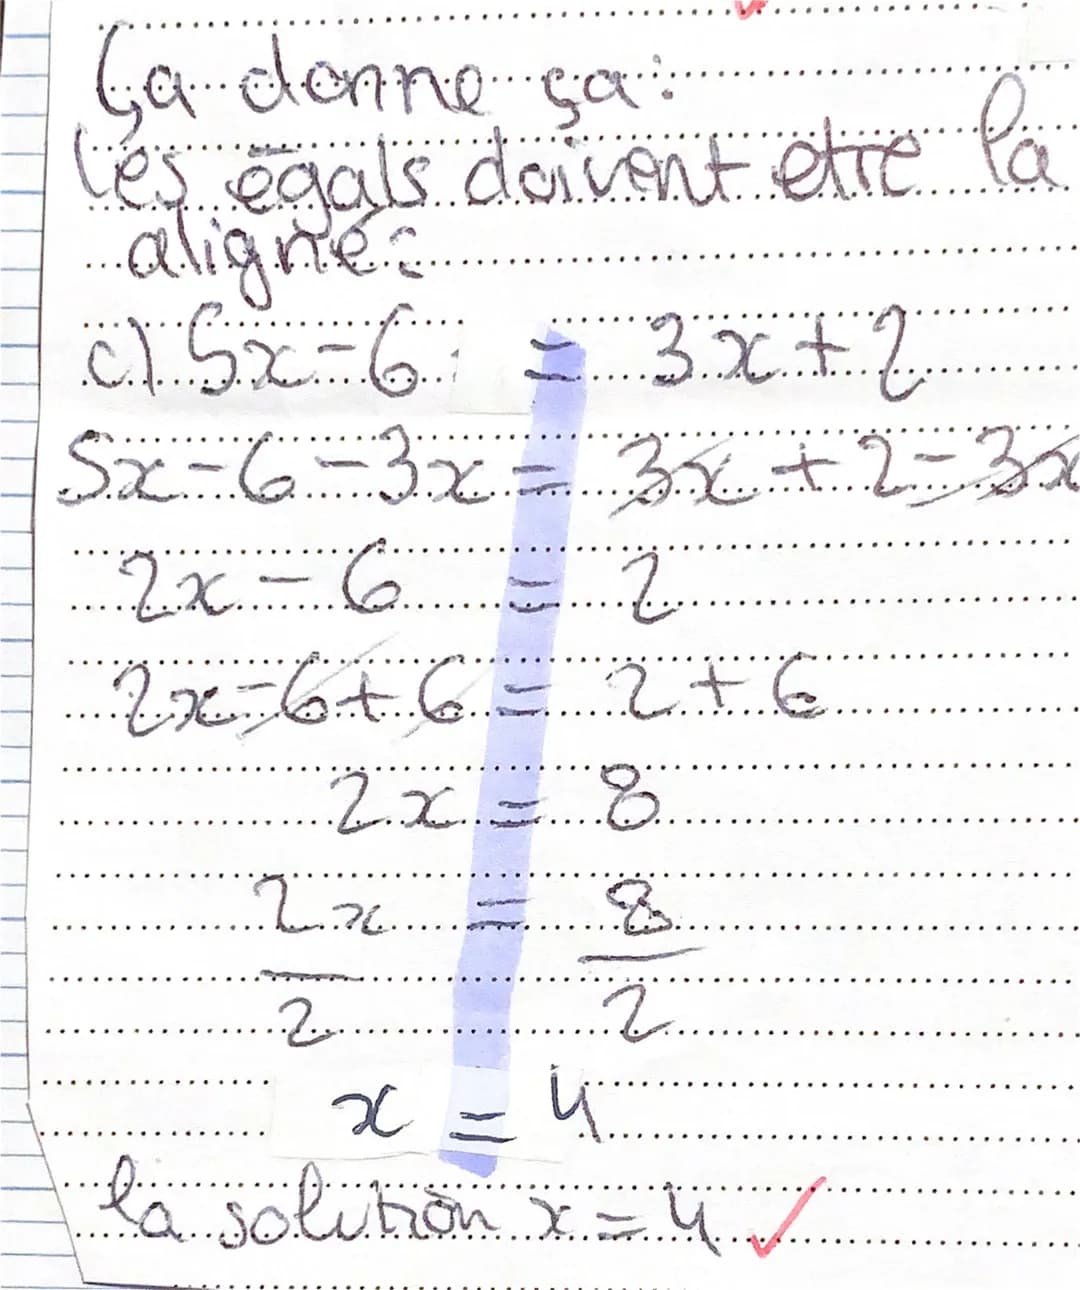 Ça donne ça:
Les égals doivent etre la
aligné:
c) 5x-6 = 3x+2
5x-6-3x = 3x+2-3x
2x-6 = 2
2x-6+6 = 2+6
2x = 8
2x = 8
2 2
x = 4
la solution x=4